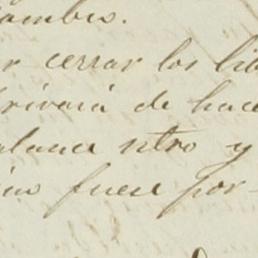 cambio.
r cerrar los lib
privará de hace
alance otro y
ino fuese por-